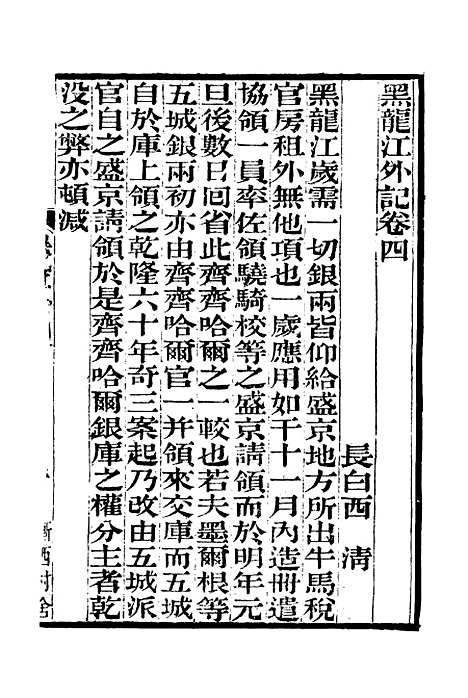 黑龍江外記卷四
長白西清
黑龍江歲需一切銀兩皆仰給盛京地方所出牛馬稅
官房租外無他項也一歲應用如干十一月內造冊遣
協領一員率佐領驍騎校等之盛京請領而於明年元
旦後數日回省此齊齊哈爾之一較也若夫墨爾根等
五城銀兩初亦由齊齊哈爾官一并領來交庫而五城
自於庫上領之乾隆六十年奇三案起乃改由五城派
官自之盛京請領於是齊齊哈爾銀庫之權分主者乾
没之弊亦頓減
漸西村舍